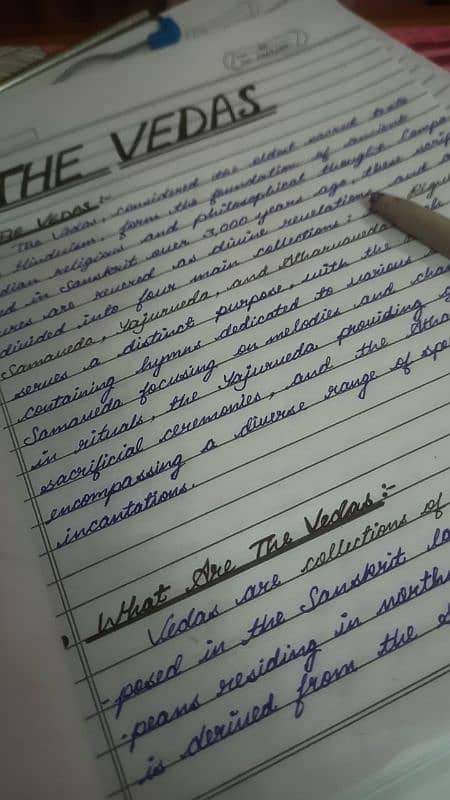 THE VEDAS
The Vedas:-
The Vedas, considered the oldest sacred texts
Hinduism, form the foundation of ancient
dian religious and philosophical thought. Compo
ed in Sanskrit over 3,000 years ago, these script
ures are revered as divine revelations and are
divided into four main collections: Rigve
Samaveda, Yajurveda, and Atharvaveda.
serves a distinct purpose, with the
containing hymns dedicated to various
Samaveda focusing on melodies and cha
in rituals, the Yajurveda providing
sacrificial ceremonies, and the Atha
encompassing a diverse range of spe
incantations.
What Are The Vedas:-
Vedas are collections of
-posed in the Sanskrit la
-peans residing in north
is derived from the